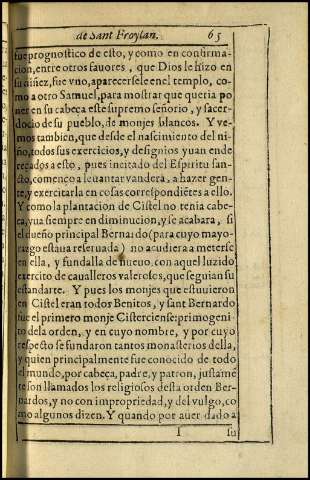 de Sant Froylan. 65
fue prognostico de esto, y como en confirma-
cion, entre otros fauores, que Dios le hizo en
su niñez, fue vno, aparecersele enel templo, co-
mo a otro Samuel, para mostrar que queria po
ner en su cabeça este supremo señorio, y sacer-
docio de su pueblo, de monjes blancos. Y ve-
mos tambien, que desde el nascimiento del ni-
ño, todos sus exercicios, y designios yuan ende
reçados a esto, pues incitado del Espiritu san-
cto, començo a leuantar vandera, a hazer gen-
te, y exercitarla en cosas correspondiẽtes a ello.
Y como la plantacion de Cistel no tenia cabe-
ça, yua siempre en diminucion, y se acabara, si
el dueño principal Bernardo (para cuyo mayo-
razgo estaua reseruada) no acudiera a meterse
en ella, y fundalla de nueuo, con aquel luzido
exercito de caualleros valerosos, que seguian su
estandarte. Y pues los monjes que estuuieron
en Cistel eran todos Benitos, y sant Bernardo
fue el primero monje Cisterciense: primogeni-
to dela orden, y en cuyo nombre, y por cuyo
respecto se fundaron tantos monasterios della,
y quien principalmente fue conocido de todo
el mundo, por cabeça, padre, y patron, justamẽ
te son llamados los religiosos desta orden Ber-
nardos, y no con impropriedad, y del vulgo, co
mo algunos dizen. Y quando por auer dado a
I su